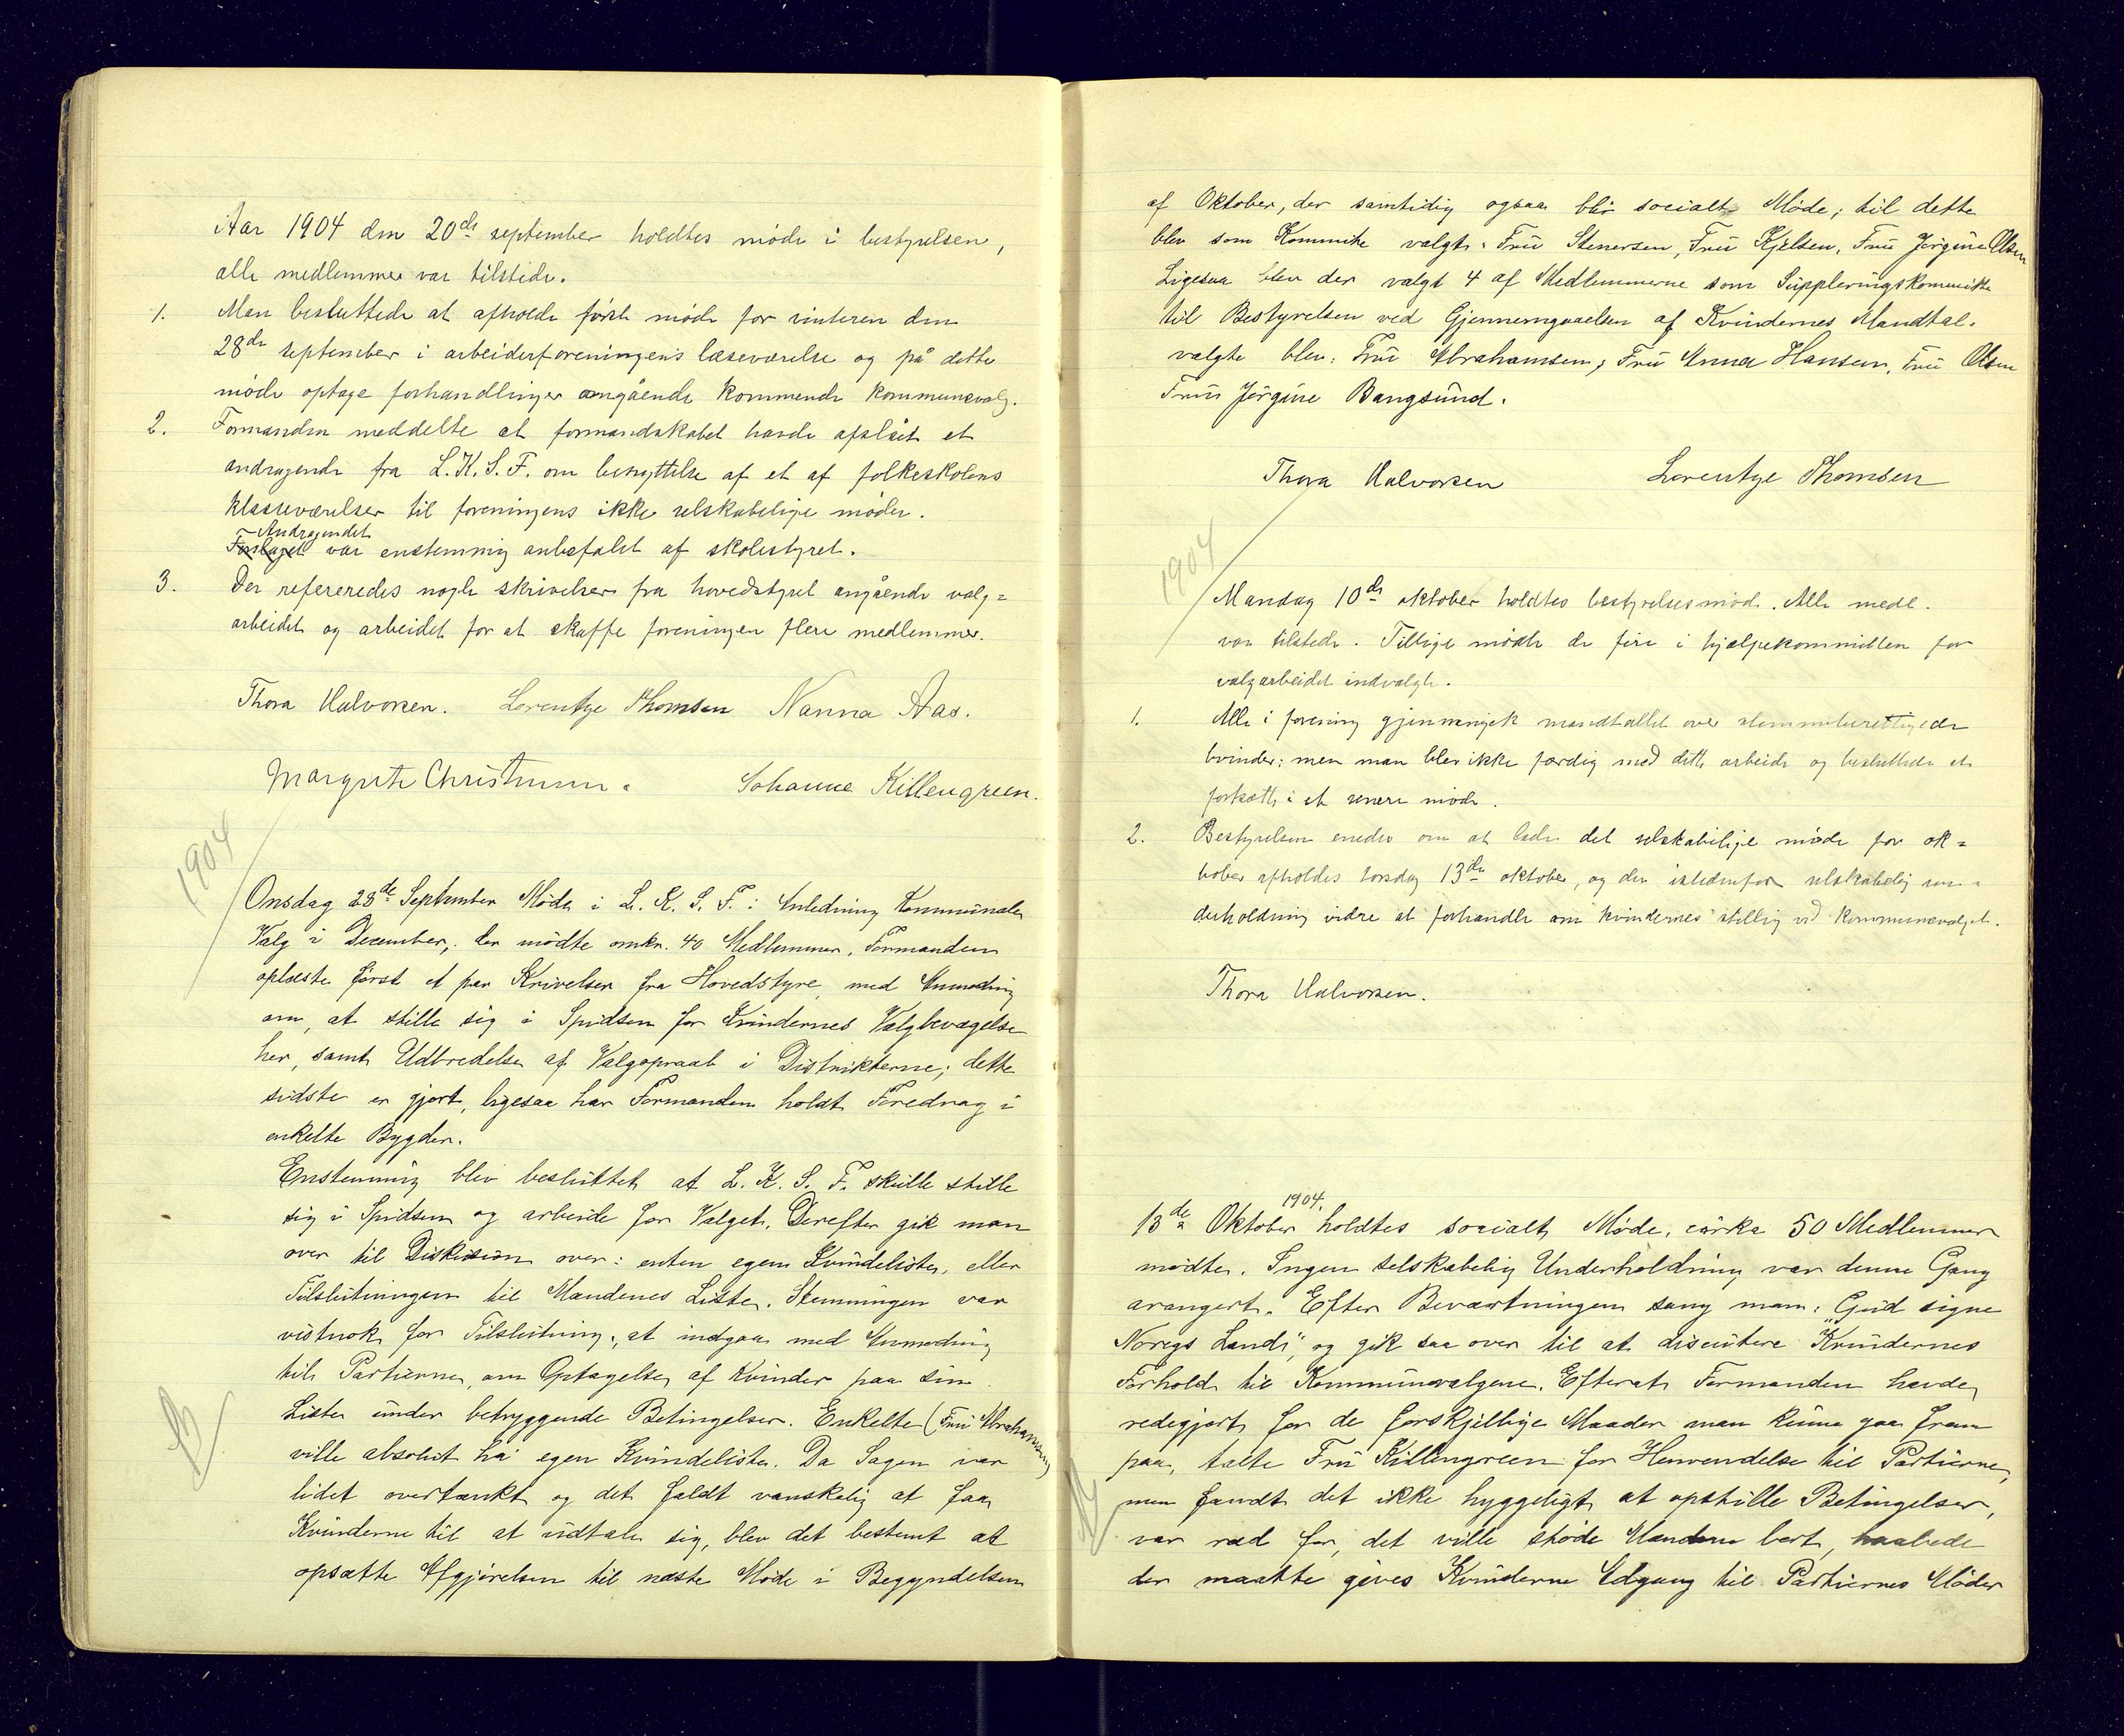 Aar 1904 den 20de september holdtes møde i bestyrelsen,
alle medlemmer var tilstede.
1. Man besluttede at afholde første møde for vinteren den
28de september i arbeiderforeningens læseværelse og på dette
møde optage forhandlinger angående kommende kommunevalg.
2. Formanden meddelte at formandskabet havde afslået et
andragende fra L.K.S.F. om benyttelse af et af folkeskolens
klasseværelser til foreningens ikke selskabelige møder.
Andragendet
Forslaget var enstemmig anbefalet af skolestyret.
3. Der refereredes nogle skrivelser fra hovedstyret angående valg=
arbeidet og arbeidet for at skaffe foreningen flere medlemmer.
Thora Halvorsen. Lorentze Thomsen Nanna Aas.
Margrete Christensen. Johanne Killengreen.
1904
Onsdag 28de September Møde i L. K. S. F. i Anledning Kommunale
Valg i December, der mødte omkr. 40 Medlemmer. Formanden
oplæste først et par Skrivelser fra Hovedstyre, med Anmodning
om, at stille sig i Spidsen for Kvindernes Valgbevægelse
her, samt Udbredelse af Valgopraab i Distrikterne; dette
sidste er gjort, ligesaa har Formanden holdt Foredrag i
enkelte Bygder.
Enstemmig blev besluttet at L. K. S. F. skulle stille
sig i Spidsen og arbeide for Valget. Derefter gik man
over til Diskusion over: enten egen Kvindeliste, eller
Tilslutningen til Mændenes Liste. Stemningen var
vistnok for Tilslutning, at indgaa med Anmodning
til Partierne, om Optagelse af Kvinder paa sin
Liste under betryggende Betingelser. Enkelte (Fru Abrahamsen)
ville absolut ha' egen Kvindeliste. Da Sagen var
lidet overtænkt og det faldt vanskelig at faa
Kvinderne til at udtale sig, blev det bestemt at
opsætte Afgjørelsen til næste Møde i Begyndelsen
af Oktober, der samtidig ogsaa blir socialt Møde; til dette
blev som Kommite valgt: Fru Stenersen, Fru Kjelsen, Fru Jørgine Olsen
Ligesaa blev der valgt 4 af Medlemmerne som Suppleringskommitte
til Bestyrelsen ved Gjennemgaaelsen af Kvindernes Mandtal.
valgte blev: Fru Abrahamsen, Fru Anna Hansen, Fru Olsen
Fru Jørgine Bangsund.
Thora Halvorsen Lorentze Thomsen
1904
Mandag 10de oktober holdtes bestyrelsesmøde. Alle medl.
var tilstede. Tillige mødte de fire i hjælpekommitteen for
valgarbeidet indvalgte.
1. Alle i forening gjennemgik mandtallet over stemmeberettigede
kvinder; men man blev ikke færdig med dette arbeide og besluttede at
fortsætte i et senere møde.
2. Bestyrelsen enedes om at lade det selskabelige møde for ok=
tober afholdes torsdag 13de oktober, og der istedenfor selskabelig un=
derholdning videre at forhandle om kvindernes stilling ved kommunevalget.
Thora Halvorsen.
1904.
13de Oktober holdtes socialt Møde, cirka 50 Medlemmer
mødte. Ingen selskabelig Underholdning var denne Gang
arangert. Efter Beværtningen sang man: „Gud signe
Noregs Land", og gik saa over til at discutere Kvindernes
Forhold til Kommunevalgene. Efterat Formanden havde
redegjort for de forskjellige Maader man kunne gaa fram
paa, talte Fru Killengreen for Henvendelse til Partierne,
men fandt det ikke hyggeligt at opstille Betingelser,
var ræd for, det ville støde Mændene bort, haabede
der maatte gives Kvinderne Adgang til Partiernes Møder